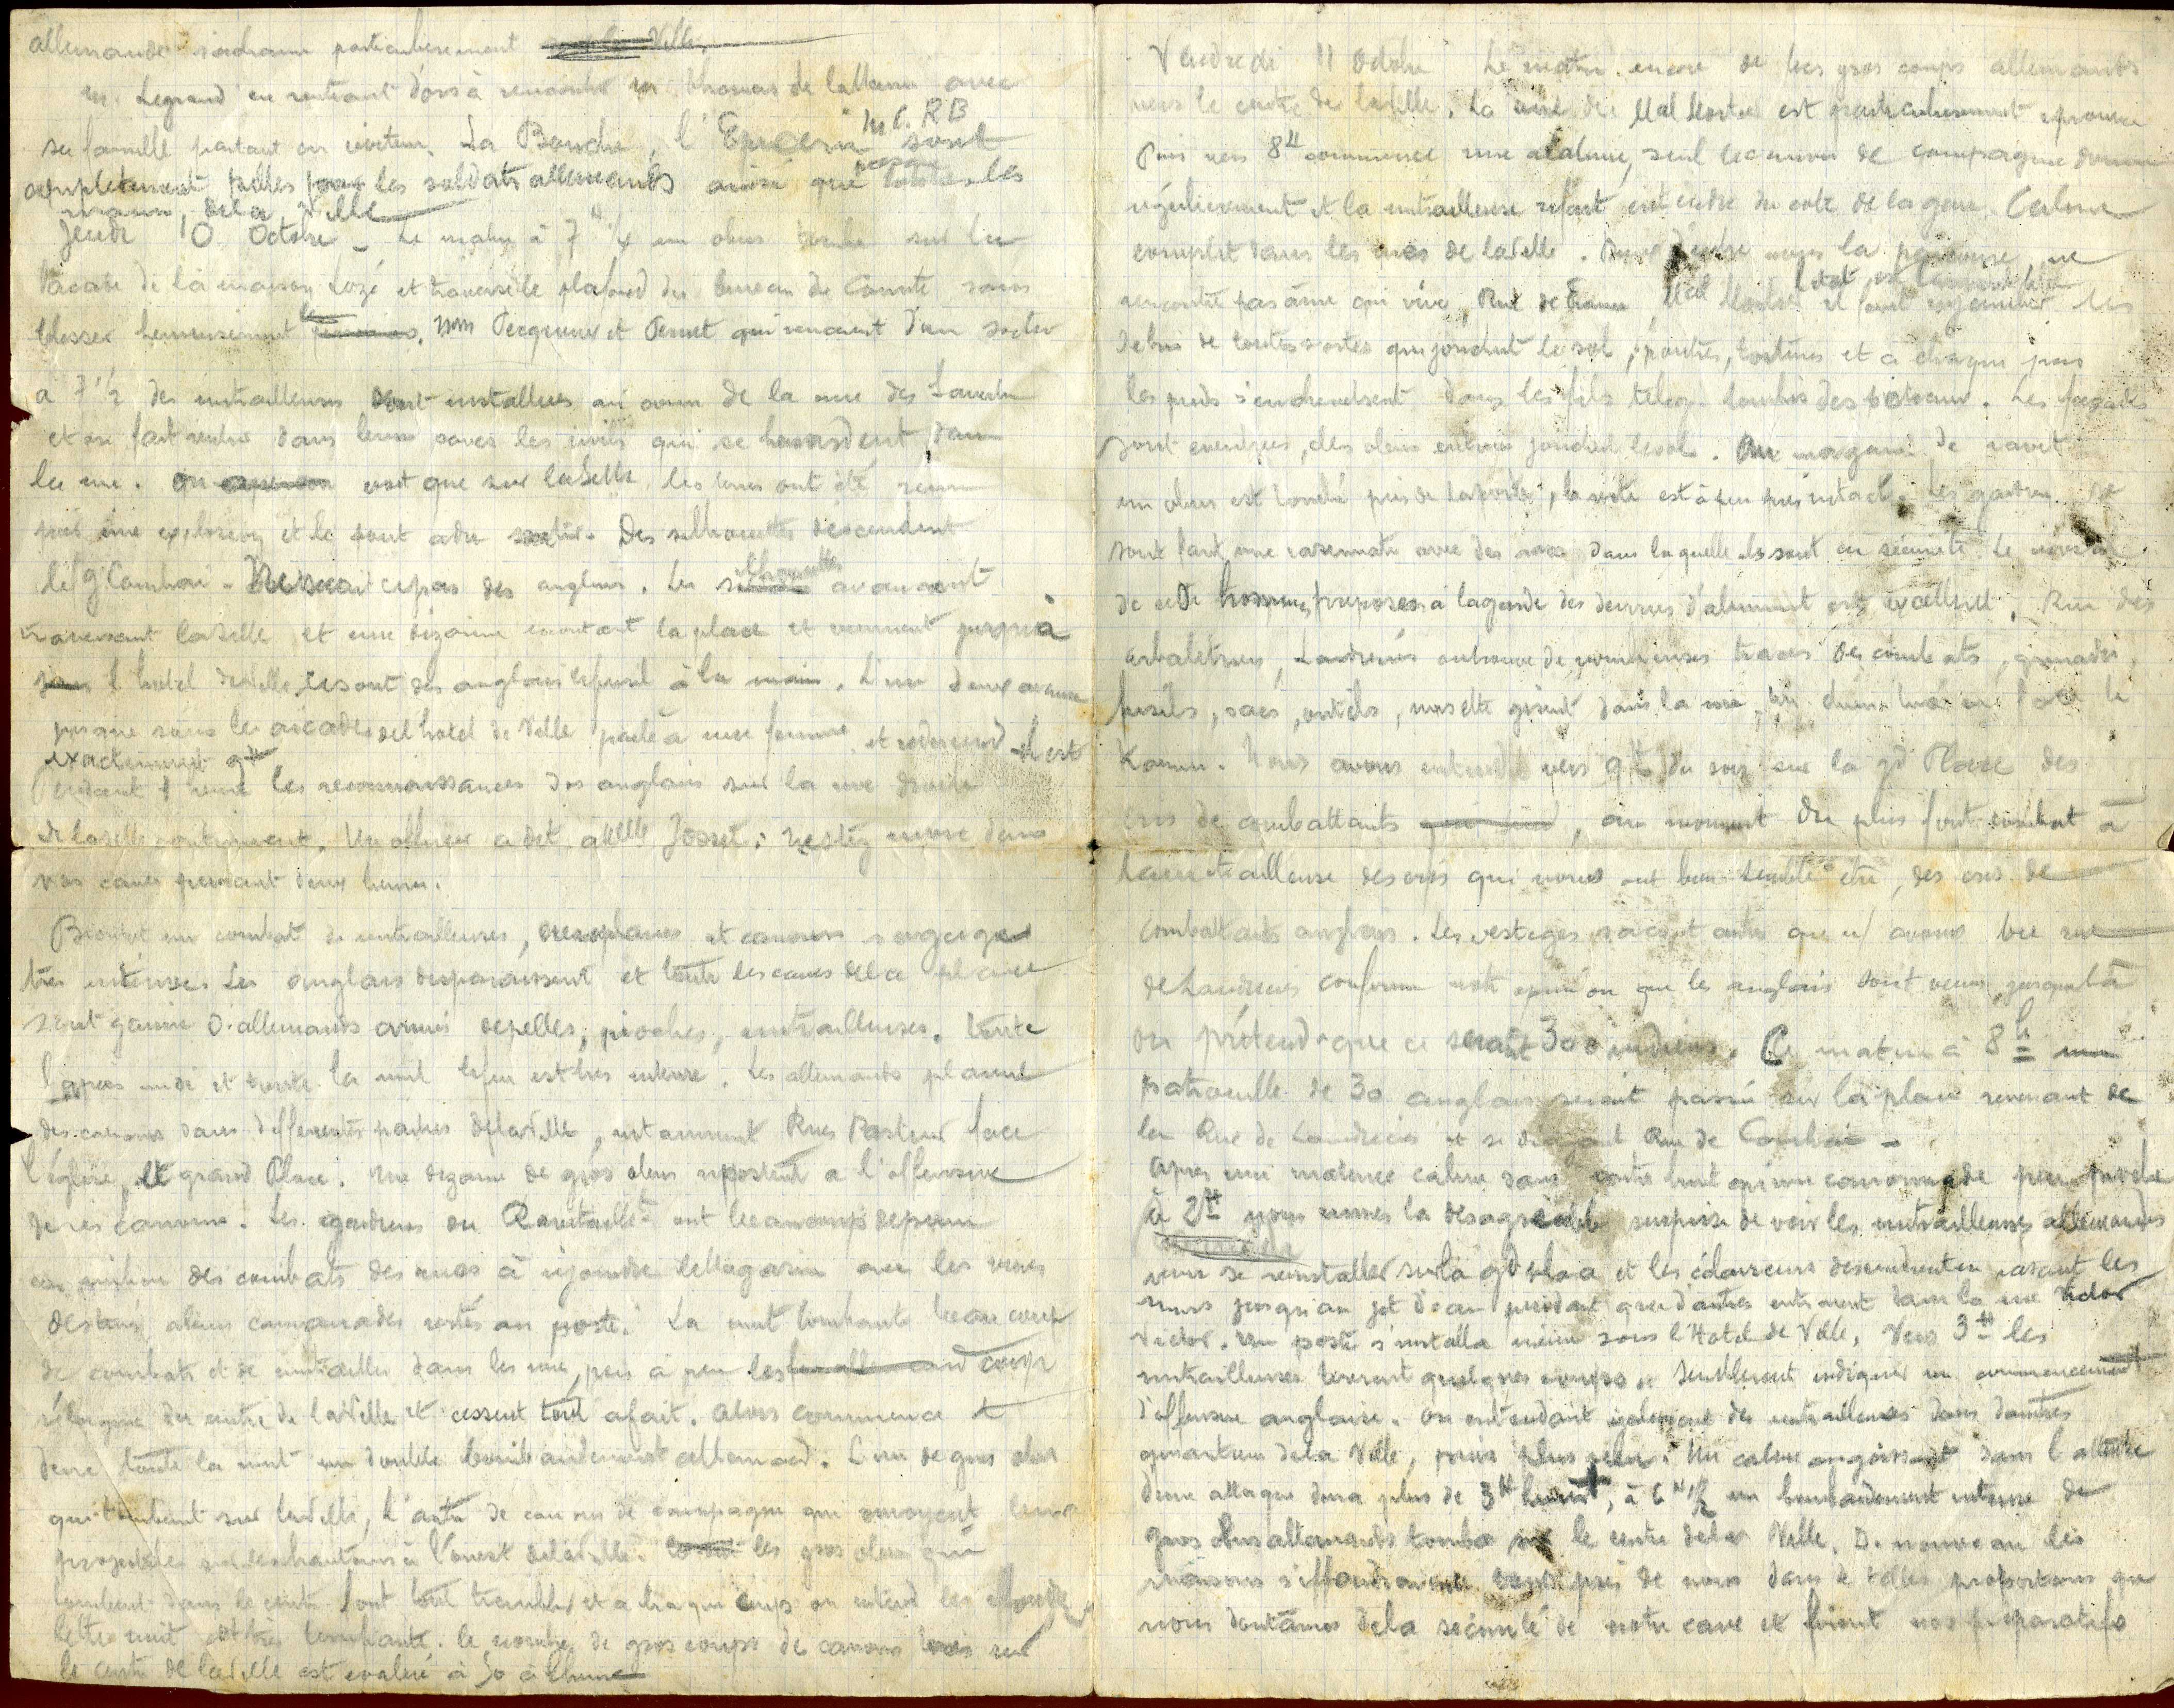 allemande s'acharne particulièrement
M. Legrand en rentrant d'ors à rencontré M. Thomas de avec
sa famille partant en . La Bouche, l'Epicerie M C. R B sont
complètement pillés par les soldats allemands ainsi que toutes les
maisons de la Ville
Jeudi 10 Octobre - Le matin à 7 H 1/4 un obus tombe sur la
façade de la maison Lozé et traverse le plafond du bureau du Comité sans
blesser heureusement MM Pecqueur et Pernet qui venaient d'en sortir
a 7 1/2 des mitrailleuses sont installées au coin de la rue des
et on fait rentrer dans leurs caves les civils qui se hasardent dans
la rue. On voit que sur la Selle les ont été
une explosion et le pont a du sauter. Des silhouettes descendent
le fg Cambrai - Ne serait ce pas des anglais. Les silhouettes avancent
traversant la Selle et une dizaine montent la place et viennent jusqu'à
l'hotel de ville, ce sont des anglais le fusil à la main. L'un d'eux avance
jusque sous les arcades de l'hotel de Ville parle à une femme et redescend il est
exactement 9 H
Pendant 1 heure les reconnaissances des anglais sur la rive droite
de la Selle continuent. Un officier a dit à Melle Josset : restez encore dans
vos caves pendant deux heures.
Bientôt un combat de mitrailleuses, aeroplanes et canons s'engage
très intense. Les anglais disparaissent et toutes les caves de la place
sont garnies d'allemands armés de pelles, pioches, mitrailleuses. Toute
l'après midi et toute la nuit le feu est très intense. Les allemands placent
des canons dans differentes parties de la Ville, notamment Rues Pasteur face
l'église, et grand Place. Une dizaine de gros obus ripostent a l'offensive
de ces canons. Les gardiens du Ravitaillt ont beaucoup de peine
au milieu des combats des rues à rejoindre le Magasin avec les vivres
destinés à leurs camarades restés au poste. La nuit tombante beaucoup
de combats et de mitrailles dans les rues, peu à peu les coups
s'éloignent du centre de la Ville et cessent tout a fait. Alors commence et
dure toute la nuit un double bombardement allemand. L'un de gros obus
qui tombent sur la Ville, l'autre de canons de campagne qui envoyent leurs
projectiles sur les hauteurs à l'ouest de la Ville. les gros obus qui
tombent dans le centre font tout trembler et a chaque coup on entend les
Cette nuit est très . Le nombre de gros coups de canons tirés sur
le centre de la Ville est evalué à 50 à l'heure
Vendredi 11 Octobre Le matin encore de très gros coups allemands
vers le centre de la Ville. La rue du Mal Mortier est particulièrement éprouvée
Puis vers 8 H commence une acalmie, seul le canon de campagne donne
régulièrement et la mitrailleuse se fait entendre du coté de la gare. Calme
complet dans les rues de la Ville. nous la parcourue, ne
rencontre pas âme qui vive, Rue de France Mal Mortier il faut enjamber les
debris de toutes sortes qui jonchent le sol, poutres, toitures et à chaque pas
les pieds s'enchevetrent dans les fils télég. tombés des poteaux. Les façades
sont eventrées, des obus entiers jonchent le sol. Au magasin de ravit
un obus est tombé près de la porte, le reste est à peu près intact. Les gardiens se
sont fait une casemate avec des sacs dans laquelle ils sont en sécurité. Le moral
de cette hommes, préposés à la garde des denrées d'aliment est excellent. Rue des
arbaletriers, Landrecies on trouve de nombreuses traces des combats, grenades,
fusils, sacs, outils, musette gisent dans la rue, un chien tué
. Nous avons entendu vers 9 H du soir sur la gd Place des
cris de combattants , au moment du plus fort combat à
la mitrailleuse des cris qui nous ont bien semblé être des cris de
combattants anglais. Les vestiges que n/ avons vu rue
de Landrecies confirme notre opinion que les anglais sont venus jusque là
on prétend que ce serait 300 indiens. Ce matin à 8 h une
patrouille de 30 anglais serait passée sur la place revenant de
la Rue de Landrecies et se dirigeant Rue de Cambrai -
Après une matinée calme sans autre bruit qu'une canonnade peu
à 2 H nous eumes la désagréable surprise de voir les mitrailleuses allemandes
venir se reinstaller sur la gd place et les éclaireurs descendirent en rasant les
murs jusqu'au jet d'eau pendant que d'autres entraient dans la rue Victor
Victor. Un poste s'installa même sous l'Hotel de Ville. Vers 3 H les
mitrailleuses tirerent quelques coups et semblerent indiquer un commencement
d'offensive anglaise. On entendait également des mitrailleuses dans d'autres
quartiers de la Ville, puis plus rien. Un calme angoissant dans l'attente
d'une attaque dura plus de 3 H , à 6 H 1/2 un bombardement intense de
gros obus allemands tomba sur le centre de la Ville. De nouveau les
maisons s'effondraient près de nous dans de telles proportions que
nous doutâmes de la sécurité de notre cave et firent nos préparatifs